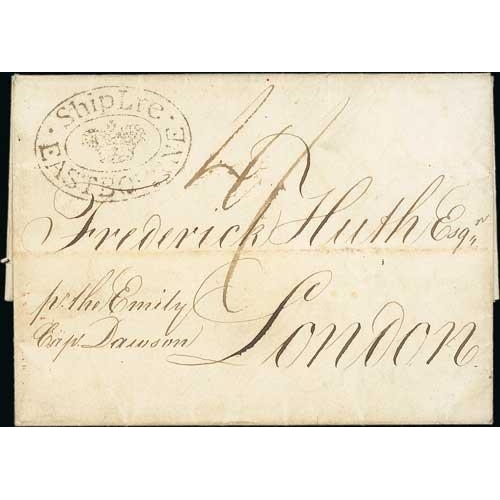 · Ship Lre ·
EASTBOURNE
4/
Frederick Huth Esqr
pr. the Emily
Capt. Dawson
London